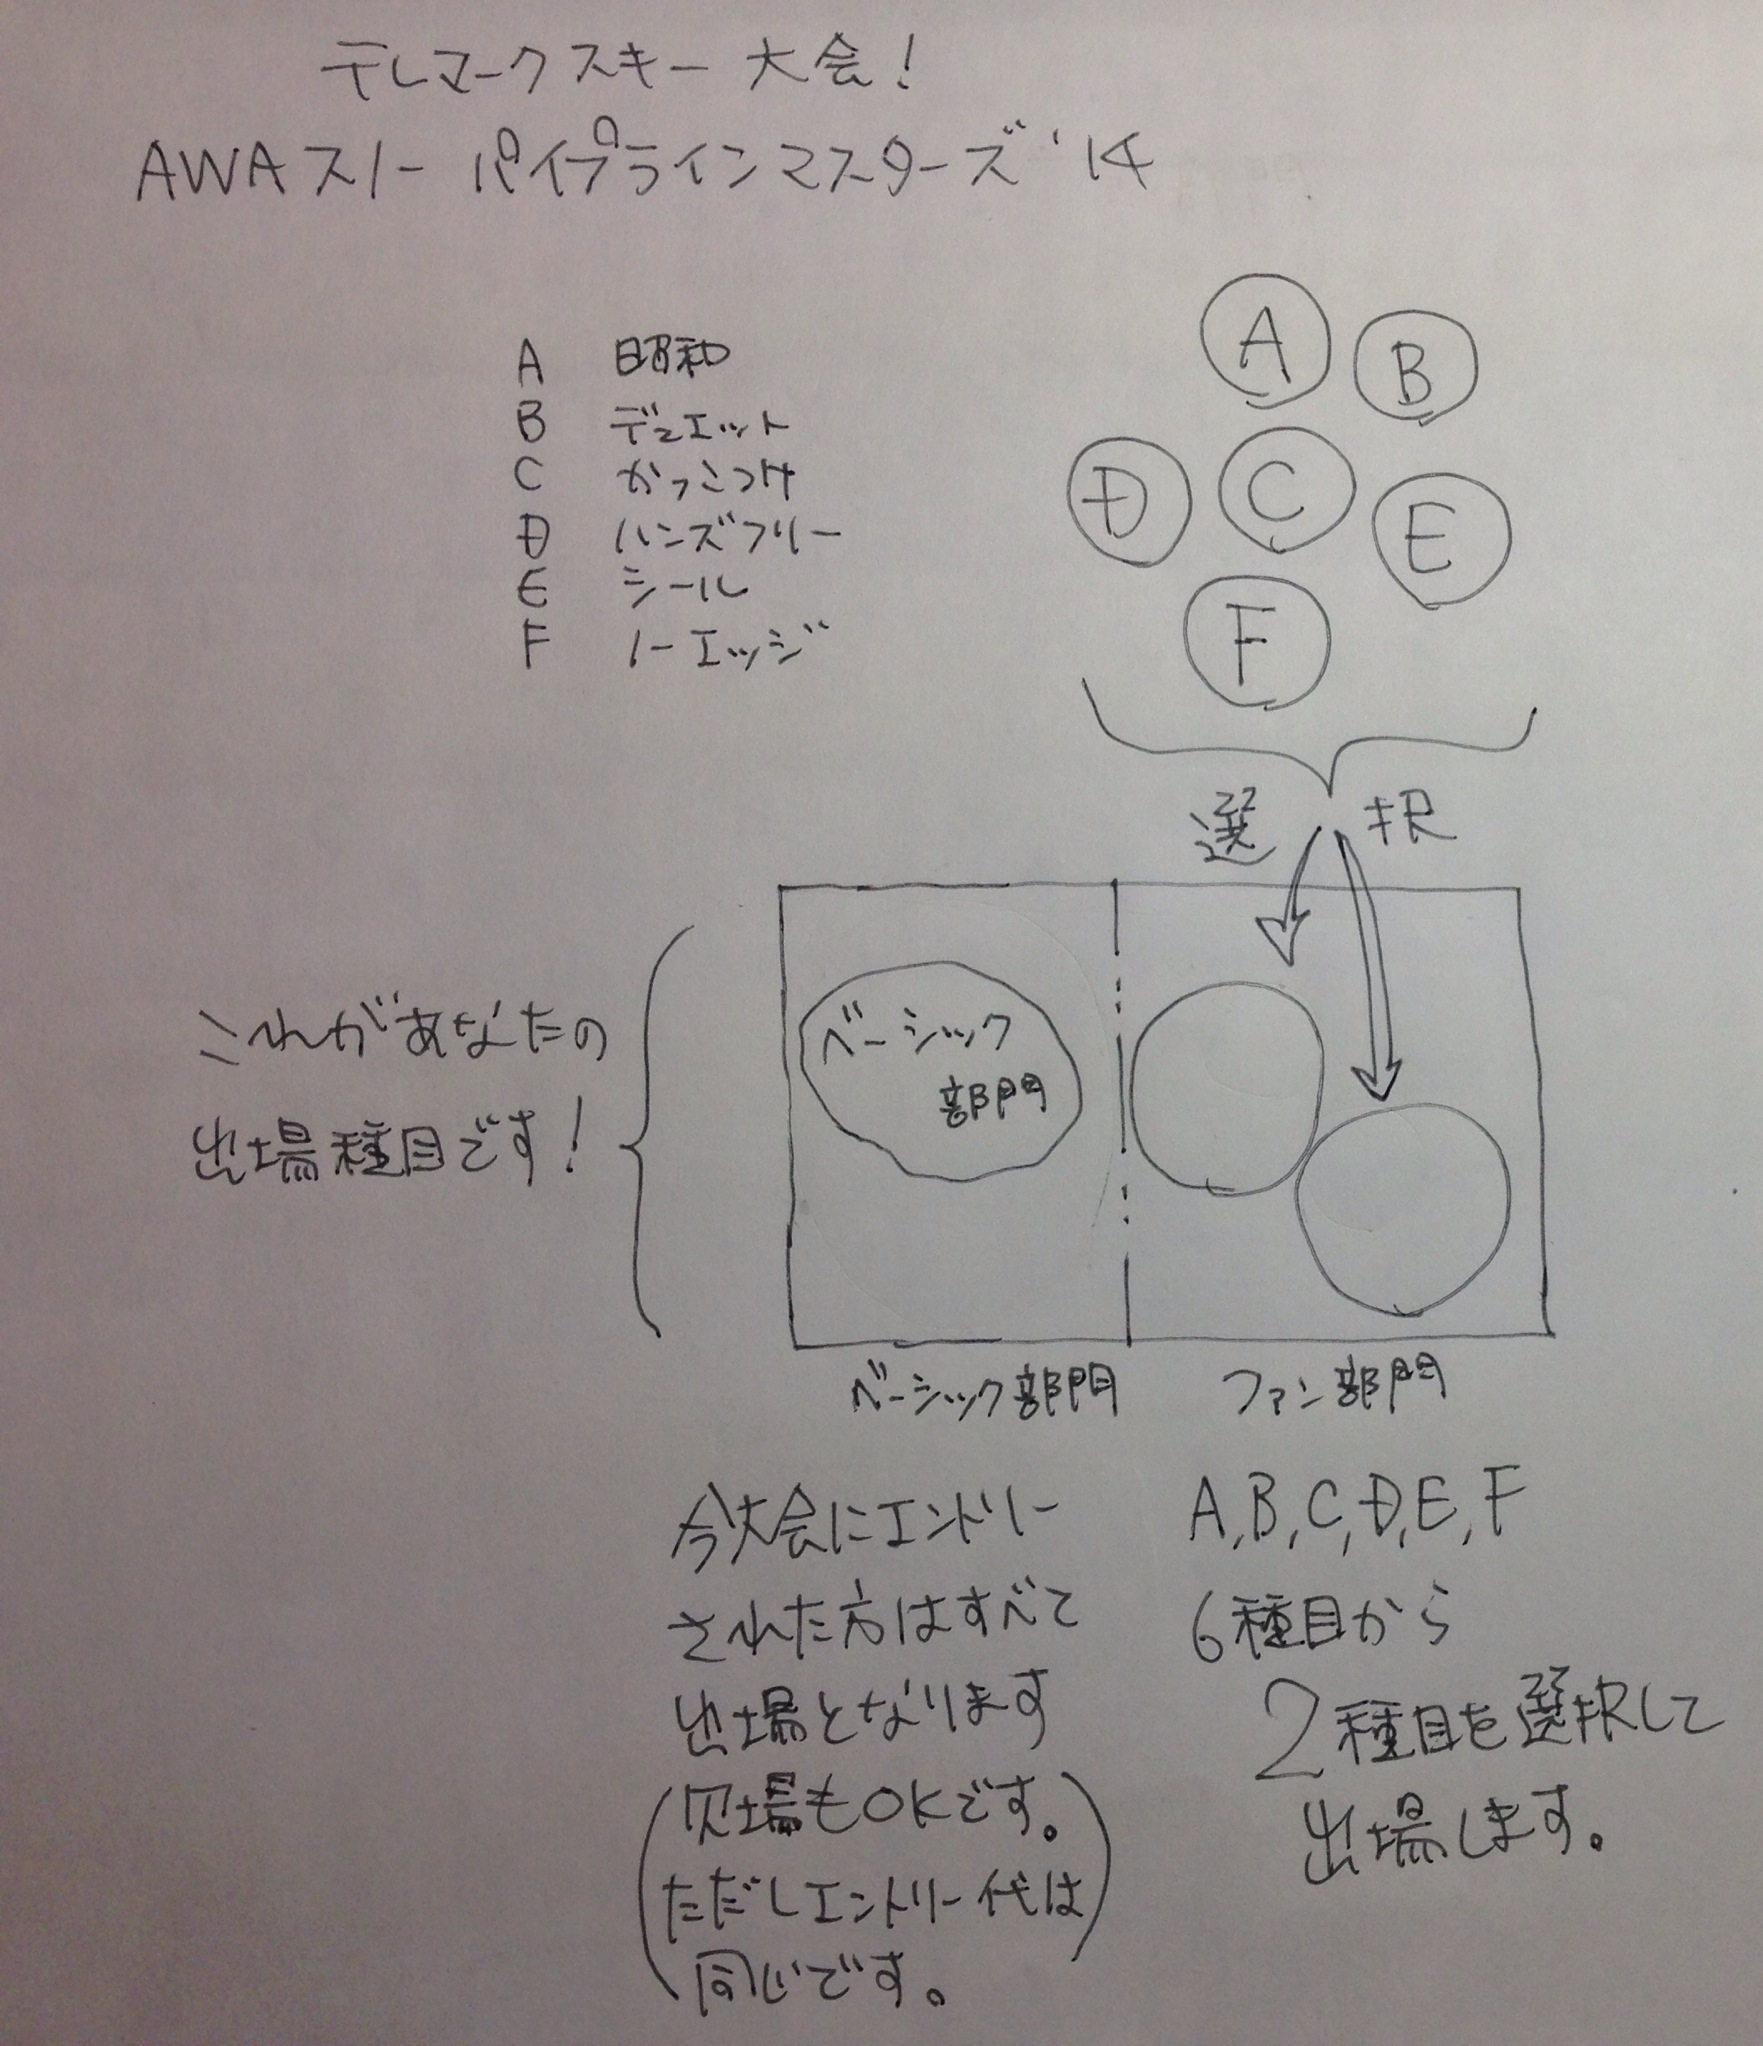 テレマークスキー大会！
AWAスノーパイプラインマスターズ '14
A 昭和
B デュエット
C かっこつけ
D ハンズフリー
E シール
F ノーエッジ
A
B
D
C
E
F
選択
これがあなたの
出場種目です！
ベーシック
部門
ベーシック部門
ファン部門
今大会にエントリー
された方はすべて
出場となります
(欠場もOKです。
ただしエントリー代は
同じです。)
A,B,C,D,E,F
6種目から
2種目を選択して
出場します。